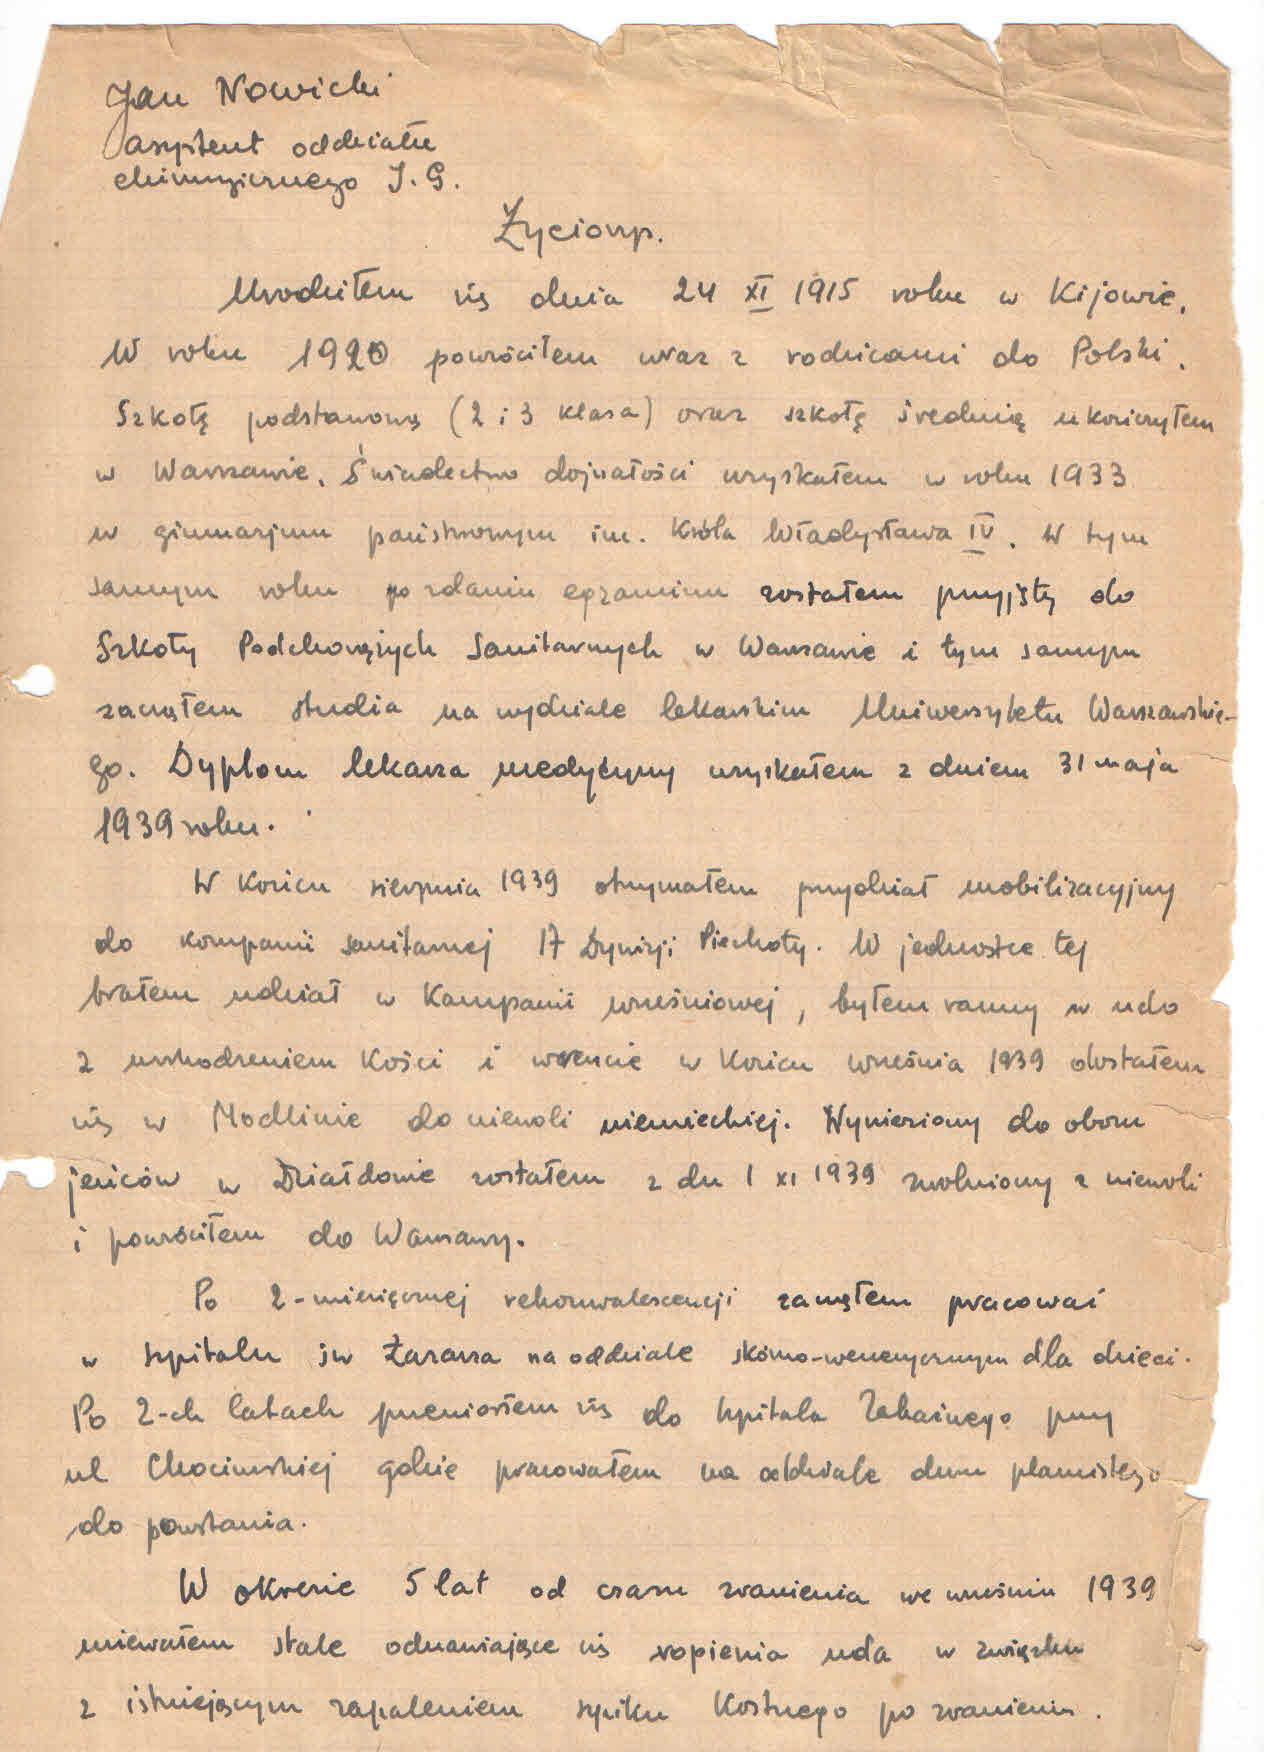 Jan Nowicki
asystent oddziału
chirurgicznego I. G.
Życiorys.
Urodziłem się dnia 24 XI 1915 roku w Kijowie.
W roku 1920 powróciłem wraz z rodzicami do Polski.
Szkołę podstawową (2 i 3 klasa) oraz szkołę średnią ukończyłem
w Warszawie. Świadectwo dojrzałości uzyskałem w roku 1933
w gimnazjum państwowym im. Króla Władysława IV. W tym
samym roku po zdaniu egzaminu zostałem przyjęty do
Szkoły Podchorążych Sanitarnych w Warszawie i tym samym
zacząłem studia na wydziale lekarskim Uniwersytetu Warszawskie-
go. Dyplom lekarza medycyny uzyskałem z dniem 31 maja
1939 roku.
W końcu sierpnia 1939 otrzymałem przydział mobilizacyjny
do kompanii sanitarnej 17 Dywizji Piechoty. W jednostce tej
brałem udział w Kampanii wrześniowej, byłem ranny w udo
z uszkodzeniem kości i wreszcie w końcu września 1939 dostałem
się w Modlinie do niewoli niemieckiej. Wywieziony do obozu
jeńców w Działdowie zostałem z dn 1 XI 1939 zwolniony z niewoli
i powróciłem do Warszawy.
Po 2-miesięcznej rekonwalescencji zacząłem pracować
w szpitalu św Łazarza na oddziale skórno-wenerycznym dla dzieci.
Po 2-ch latach przeniosłem się do szpitala Zakaźnego przy
ul Chocimskiej gdzie pracowałem na oddziale duru plamistego
do powstania.
W okresie 5 lat od czasu zranienia we wrześniu 1939
miewałem stale odnawiające się ropienia uda w związku
z istniejącym zapaleniem szpiku kostnego po zranieniu.